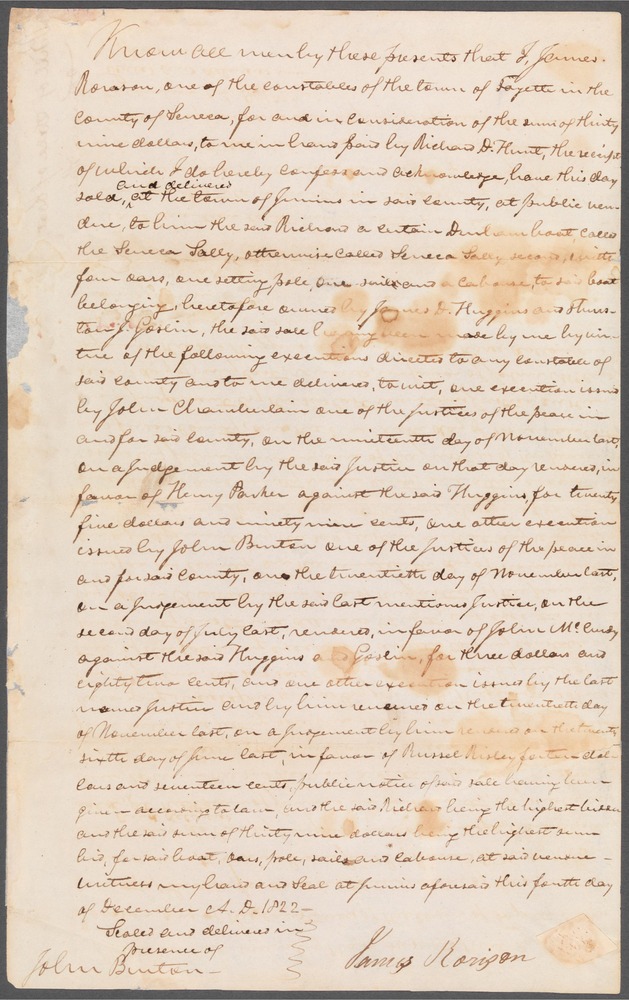 Know all men by these presents that I, James
Rorason, one of the constables of the town of Fayette in the
County of Seneca, for and in consideration of the sum of thirty
nine dollars, to me in hand paid by Richard D. Hunt, the receipt
of which I do hereby confess and acknowledge, have this day
and delivered
sold, at the town of Junius in said county, at public ven-
due, to him the said Richard a certain Durham boat called
the Seneca Sally, otherwise called Seneca Sally second, with
four oars, one setting pole, one sail and a cabouse, to said boat
belonging, heretofore owned by James D. Huggins and
Goslin, the said sale having been made by me by vir-
tue of the following executions directed to any constable of
said county and to me delivered, to wit, one execution issued
by John Chamberlain one of the justices of the peace in
and for said County, on the nineteenth day of November last,
on a judgement by the said Justice on that day rendered, in
favor of Henry Parker against the said Huggins, for twenty
five dollars and ninety nine cents, one other execution
issued by John Burton one of the justices of the peace in
and for said County, on the twentieth day of November last,
on a judgement by the said last mentioned Justice, on the
second day of July last, rendered, in favor of John McCurdy
against the said Huggins and Goslin, for three dollars and
eighty two cents, and one other execution issued by the last
named Justice and by him renewed on the twentieth day
of November last, on a judgement by him rendered on the twenty
sixth day of June last, in favor of Russel Risley for ten dol-
lars and seventeen cents, public notice of said sale having been
given according to law, and the said Richard being the highest bidder
and the said sum of thirty nine dollars being the highest sum
bid, for said boat, oars, pole, sails and cabouse, at said vendue -
witness my hand and Seal at Junius aforesaid this fourth day
of December A. D. 1822 -
Sealed and delivered in
presence of
John Burton -
James Rorison